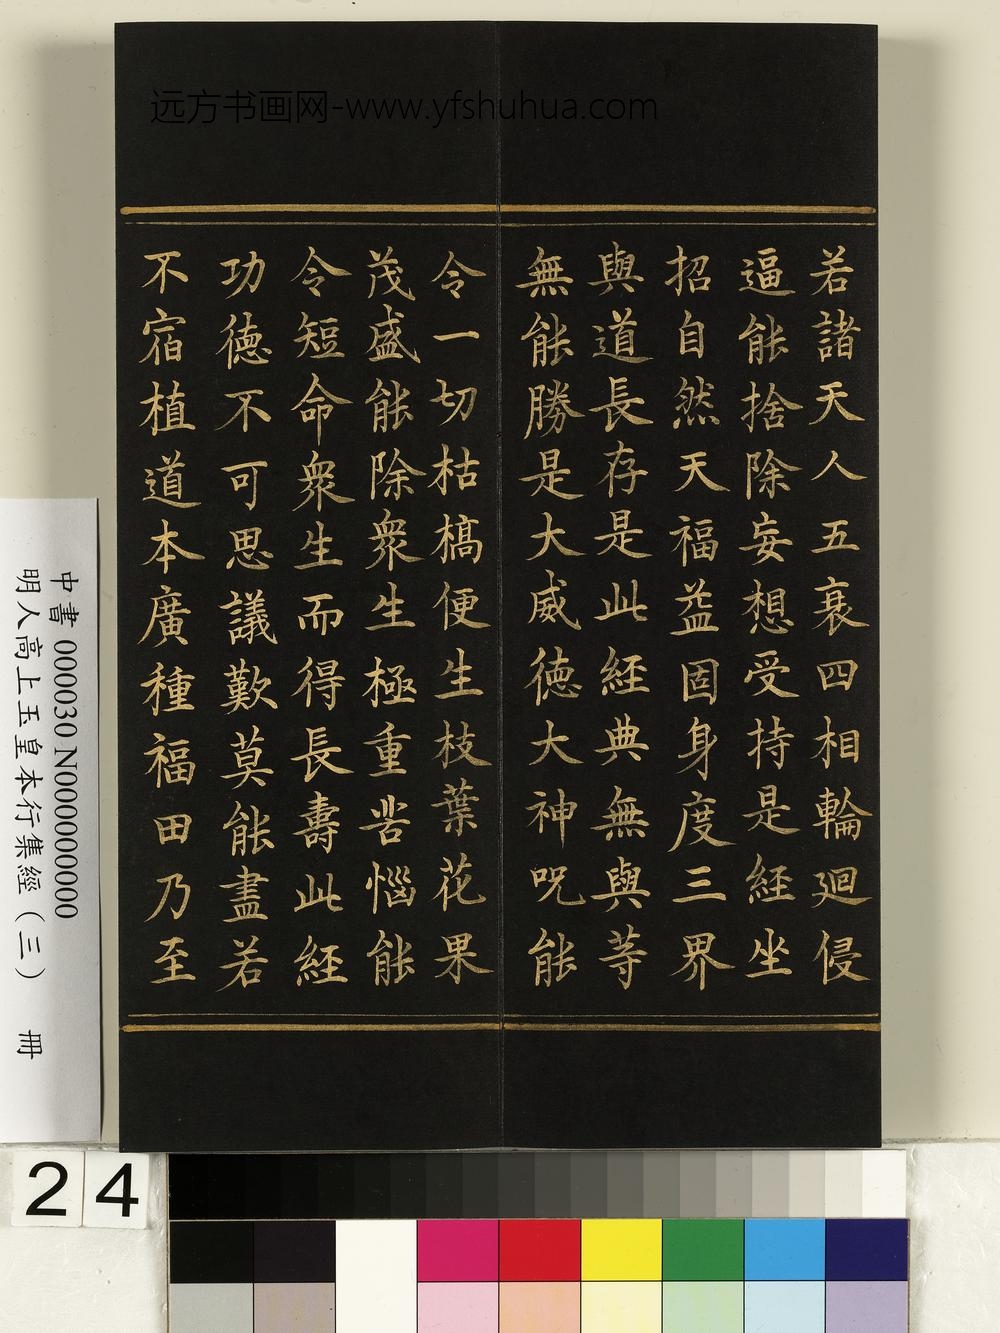 远方书画网-www.yfshuhua.com
若諸天人五衰四相輪迴侵
逼能捨除妄想受持是經坐
招自然天福益固身度三界
與道長存是此經典無與等
無能勝是大威德大神呪能
令一切枯槁便生枝葉花果
茂盛能除衆生極重苦惱能
令短命衆生而得長壽此經
功德不可思議歎莫能盡若
不宿植道本廣種福田乃至
中書 000030 N000000000
明人高上玉皇本行集經（三） 冊
24